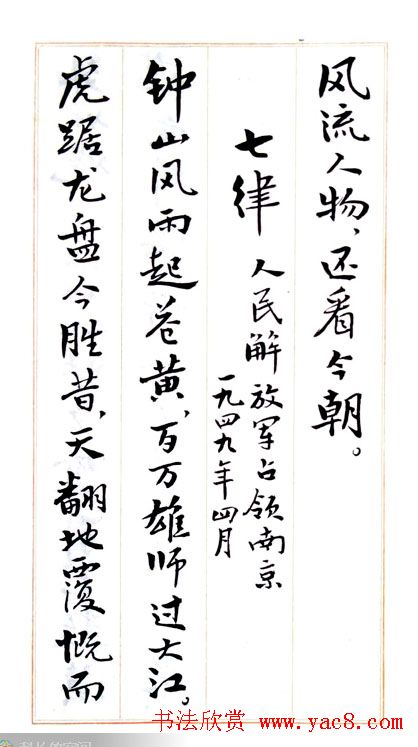 风流人物，还看今朝。
七律 人民解放军占领南京
一九四九年四月
钟山风雨起苍黄，百万雄师过大江。
虎踞龙盘今胜昔，天翻地覆慨而
书法欣赏 www.yac8.com